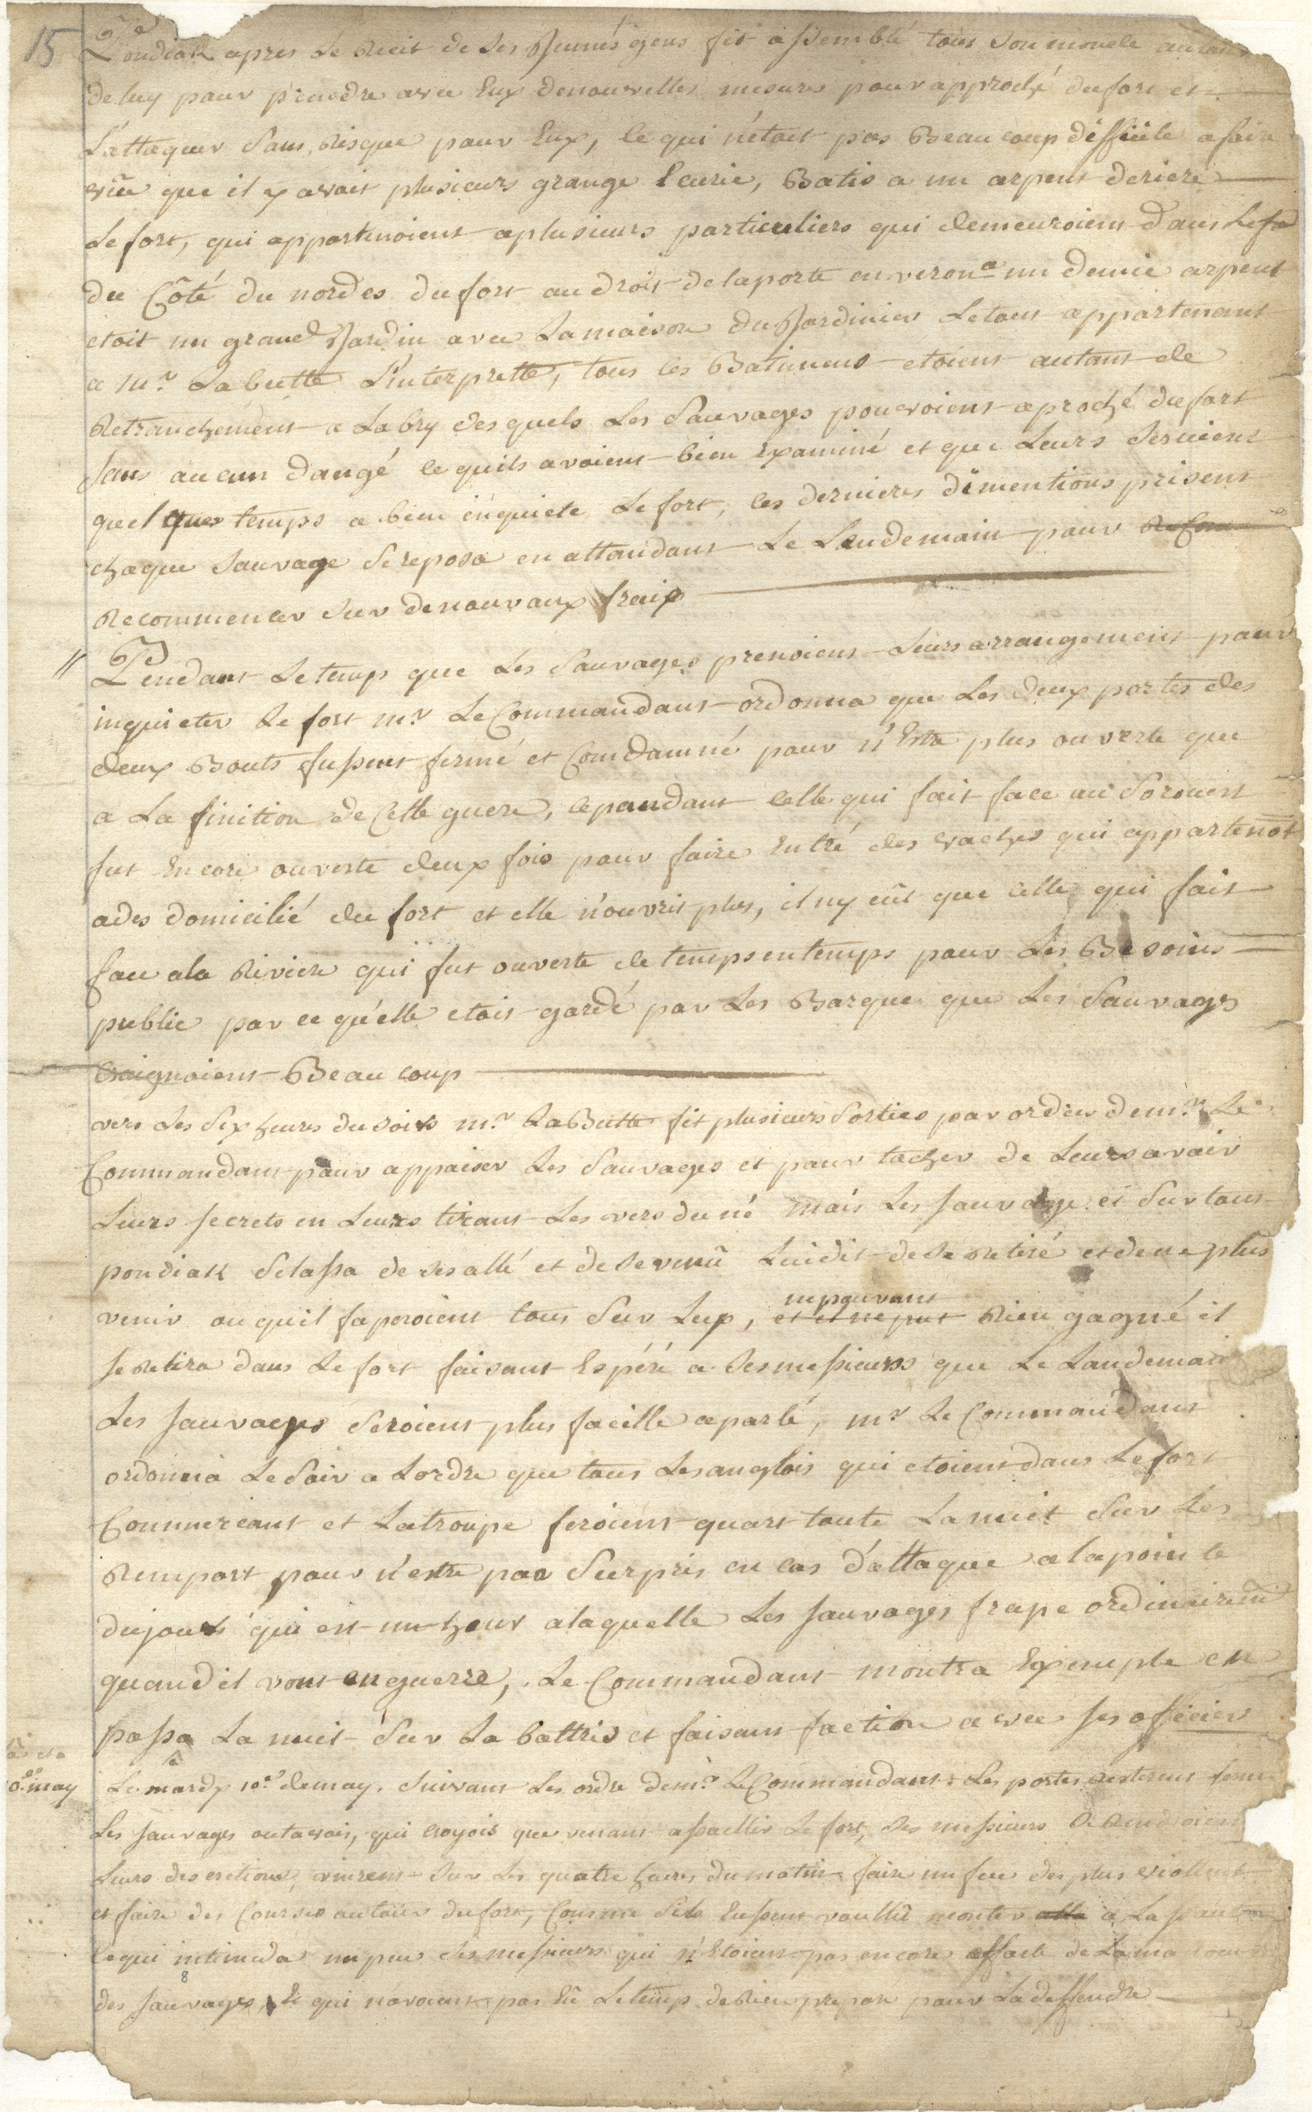 15
Pondiak apres Le Recit de Ses Jeunes gens fit assemblé tous Son monde autour
de luy pour prendre avec Eux denouvelles mesures pour approché dufort et
L'attaquer Sans Risque pour Eux, ce qui n'étoit pas Beaucoup difficile a faire
vûe que il y avoit plusieurs grange Ecurie, Batis a un arpent deriere
Le fort, qui appartenoient aplusieurs particuliers qui demeuroient dans Lefo
du Côté du nordes dufort au droit delaporte environ un demie arpent
etoit un grand Jardin avec La maison du Jardinier Letout appartenant
a mr. Labutte L'interprette, tous ces Batimens etoient autant de
Retranchement a Labry des quels Les Sauvages pouvoient aproché dufort
Sans aucun dangé ce quils avoient bien Examiné et que Leurs Servient
quelques temps a bien inquiete Le fort, ces dernieres dimentions prisent
chaque Sauvage Sereposa en attandant Le Landemain pour Recom
Recommencer Sur denouvaux fraix
// Pendant Letemps que Les Sauvages prenoient Leurs arrangement pour
inquieter Le fort mr. Le Commandant ordonna que Les deux portes des
deux Bouts fussent fermé et Comdamné pour n'Estre plus ouverte que
a La finition de Cette guere, cepandant celle qui fait face au Sorouest
fut Encore ouverte deux fois pour faire Entré des vaches qui appartenot
ades domicilié du fort et elle n'ouvrit plus, il ny eut que celle qui fait
face ala Riviere qui fut ouverte de temps entemps pour Les Besoins
public par ce qu'elle etoit gardé par Les Barque que Les Sauvages
Craignoient Beaucoup
vers Les Six heures du soirs mr. LaButte fit plusieurs Sorties par ordre demr. Le
Commandant pour appaiser Les Sauvages et pour tacher de Leur savoir
Leurs secrets en Leurs tirant Les vers du né mais Les Sauvage et Sur tout
pondiak Selassa de ses allé et de Sevenû Luidit de Se Retiré et de ne plus
venir ou quil faperoient tous Sur Luy, et il ne put nepouvant Rien gagné il
se Retira dans Le fort faisant Espéré a Sesmessieurs que Le Landemain
Les Sauvages Seroient plus facille aparlé, mr Le Commandant
ordonna Le Soir a Lordre que tous Les anglois qui etoient dans Le fort
Commercant et Latroupe feroient quart toute La nuit Sur Les
Remport pour n'estre pas Surpris en cas d'attaque alapointe
dujour qui est un heur alaquelle Les Sauvages frape ordinairemt
quand il vont enguerre, Le Commandant montra Exemple en
passa La nuit Sur La battris et faisant faction avec Ses officiers
10e. may Le mardy 10e. demay. Suivant Les ordre demr. Le Commandant Les portes Resterent fermé
Les Sauvages outavois, qui croyois que venant assaillir Le fort, Ses messieurs Se Rendroient
Leurs descretions, vinrent Sur Les quatre heures dumatin faire un feu des plus viollent
et faire des Courses autour dufort, Comme Sils Eussent voullû monter alla a La
ce qui intimida un peu Ses messieurs qui n'Etoient pas encore aufait de Lama
des Sauvages 8 & qui n'avoient pas Eû Letemps deRien preparé pour Ladeffendre